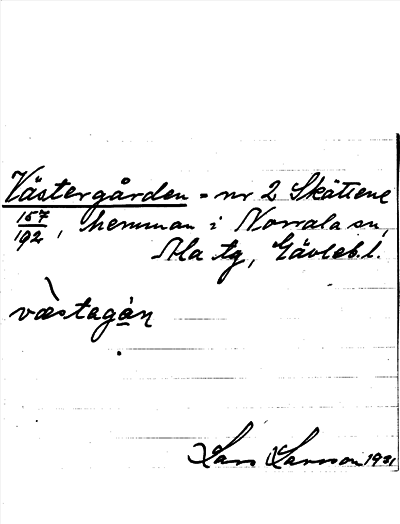 Västergården = nr 2 Skättene
157/192, hemman i Norrala sn,
Ala tg, Gävleb. l.
væ̀stagạ́ṇ
Lars Larsson 1931